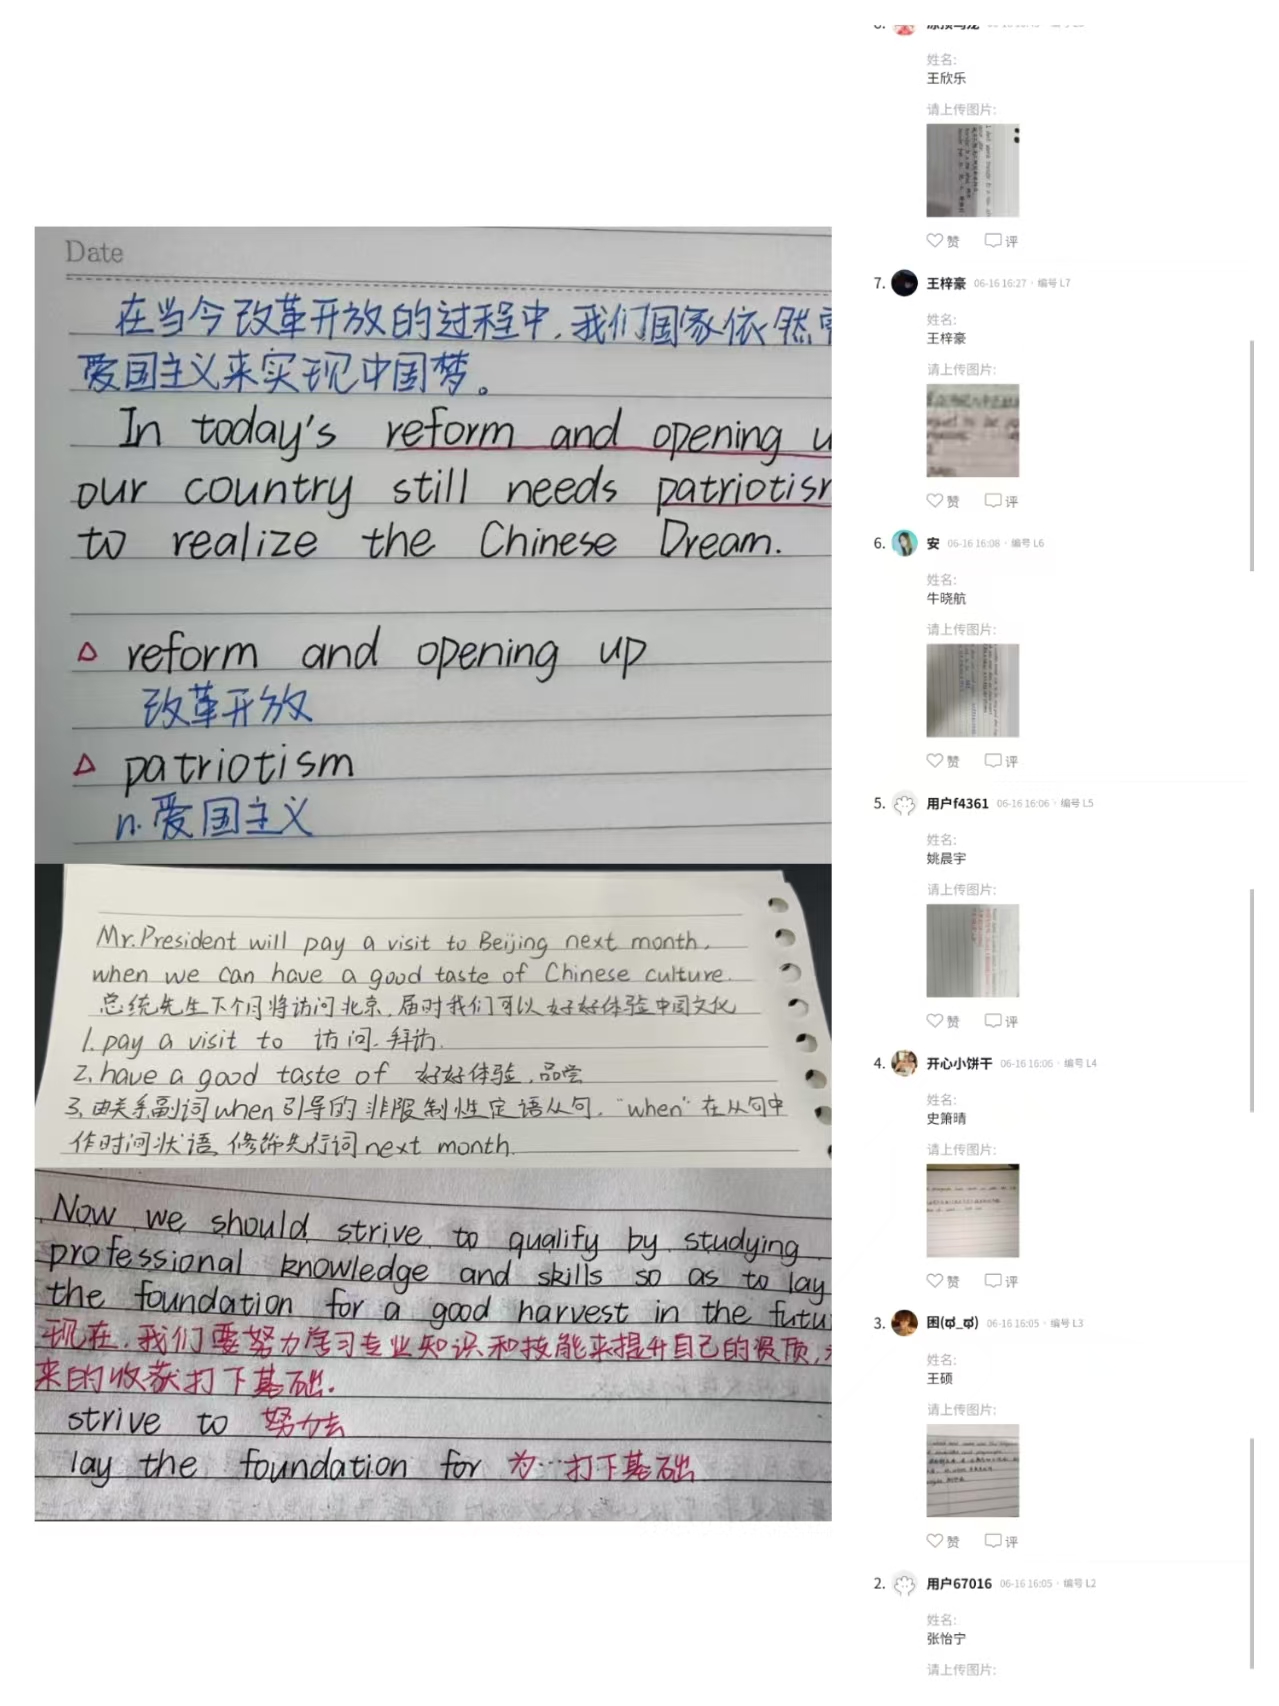 Date
在当今改革开放的过程中,我们国家依然需
爱国主义来实现中国梦。
In today's reform and opening u
our country still needs patriotism
to realize the Chinese Dream.
△ reform and opening up
改革开放
△ patriotism
n. 爱国主义
Mr. President will pay a visit to Beijing next month,
when we can have a good taste of Chinese culture.
总统先生下个月将访问北京,届时我们可以好好体验中国文化
1. pay a visit to 访问.拜访.
2. have a good taste of 好好体验,品尝
3. 由关系副词when引导的非限制性定语从句,"when"在从句中
作时间状语,修饰先行词next month.
Now we should strive to qualify by studying
professional knowledge and skills so as to lay
the foundation for a good harvest in the futu
现在,我们要努力学习专业知识和技能来提升自己的资质,
来的收获打下基础.
strive to 努力去
lay the foundation for 为…打下基础
姓名:
王欣乐
请上传图片:
赞 评
7. 王梓豪 06-16 16:27 · 编号 L7
姓名:
王梓豪
请上传图片:
赞 评
6. 安 06-16 16:08 · 编号 L6
姓名:
牛晓航
请上传图片:
赞 评
5. 用户f4361 06-16 16:06 · 编号 L5
姓名:
姚晨宇
请上传图片:
赞 评
4. 开心小饼干 06-16 16:06 · 编号 L4
姓名:
史箫晴
请上传图片:
赞 评
3. 困(ಥ_ಥ) 06-16 16:05 · 编号 L3
姓名:
王硕
请上传图片:
赞 评
2. 用户67016 06-16 16:05 · 编号 L2
姓名:
张怡宁
请上传图片: